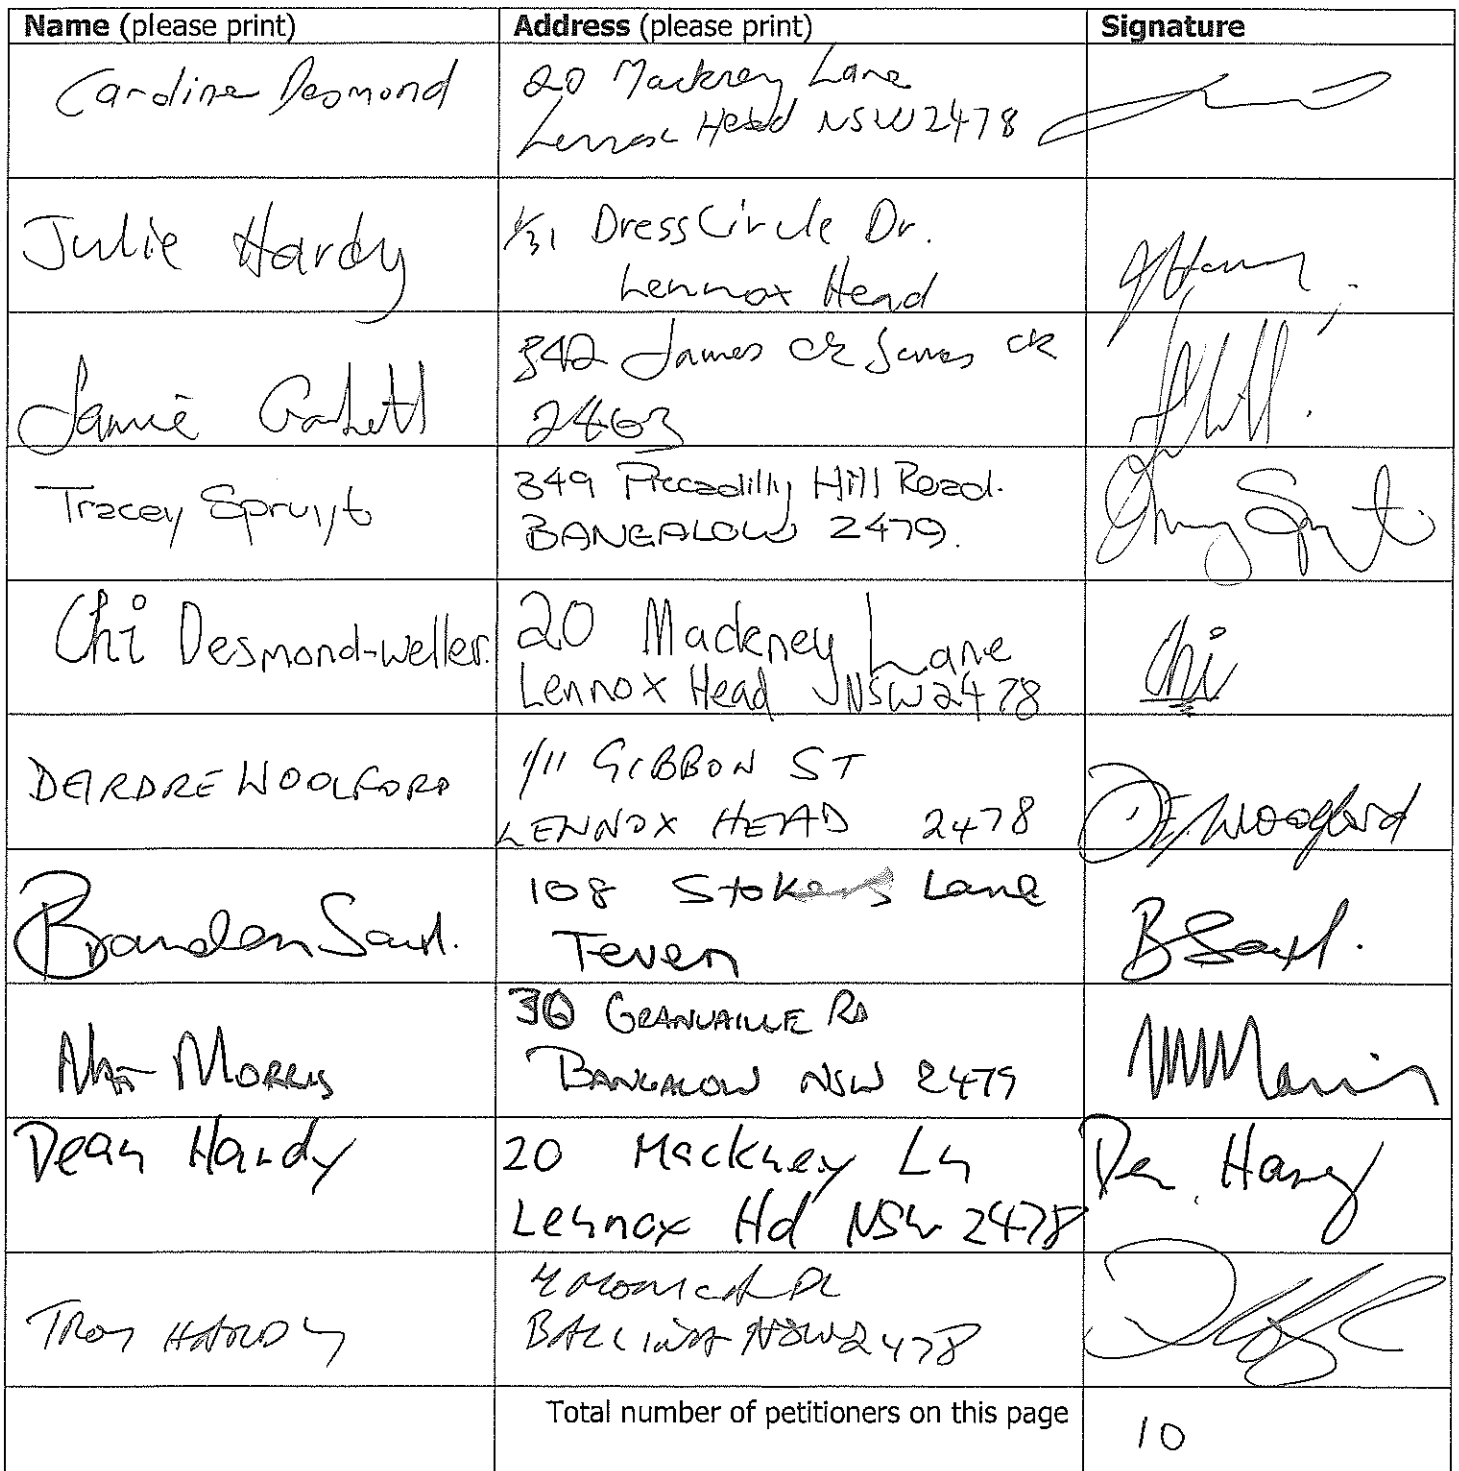 Name (please print) Address (please print) Signature
Caroline Desmond
20 Mackney Lane
Lennox Head NSW 2478
Julie Hardy
1/31 Dress Circle Dr.
Lennox Head
Jamie
342 James Ck James Ck
2463
Tracey Spruyt
349 Piccadilly Hill Road.
BANGALOW 2479.
Tracey Spruyt
Chi Desmond-weller.
20 Mackney Lane
Lennox Head NSW 2478
Chi
DEIRDRE WOOLFORD
1/11 GIBBON ST
LENNOX HEAD 2478
Woolford
Branden Saxl.
108 Stokers Lane
Teven
B Saxl.
MORRIS
36 GRANUAILLE RD
BANGALOW NSW 2479
Dean Hardy
20 Mackney Ln
Lennox Hd NSW 2478
TROY HARDY
BALLINA NSW 2478
Total number of petitioners on this page 10